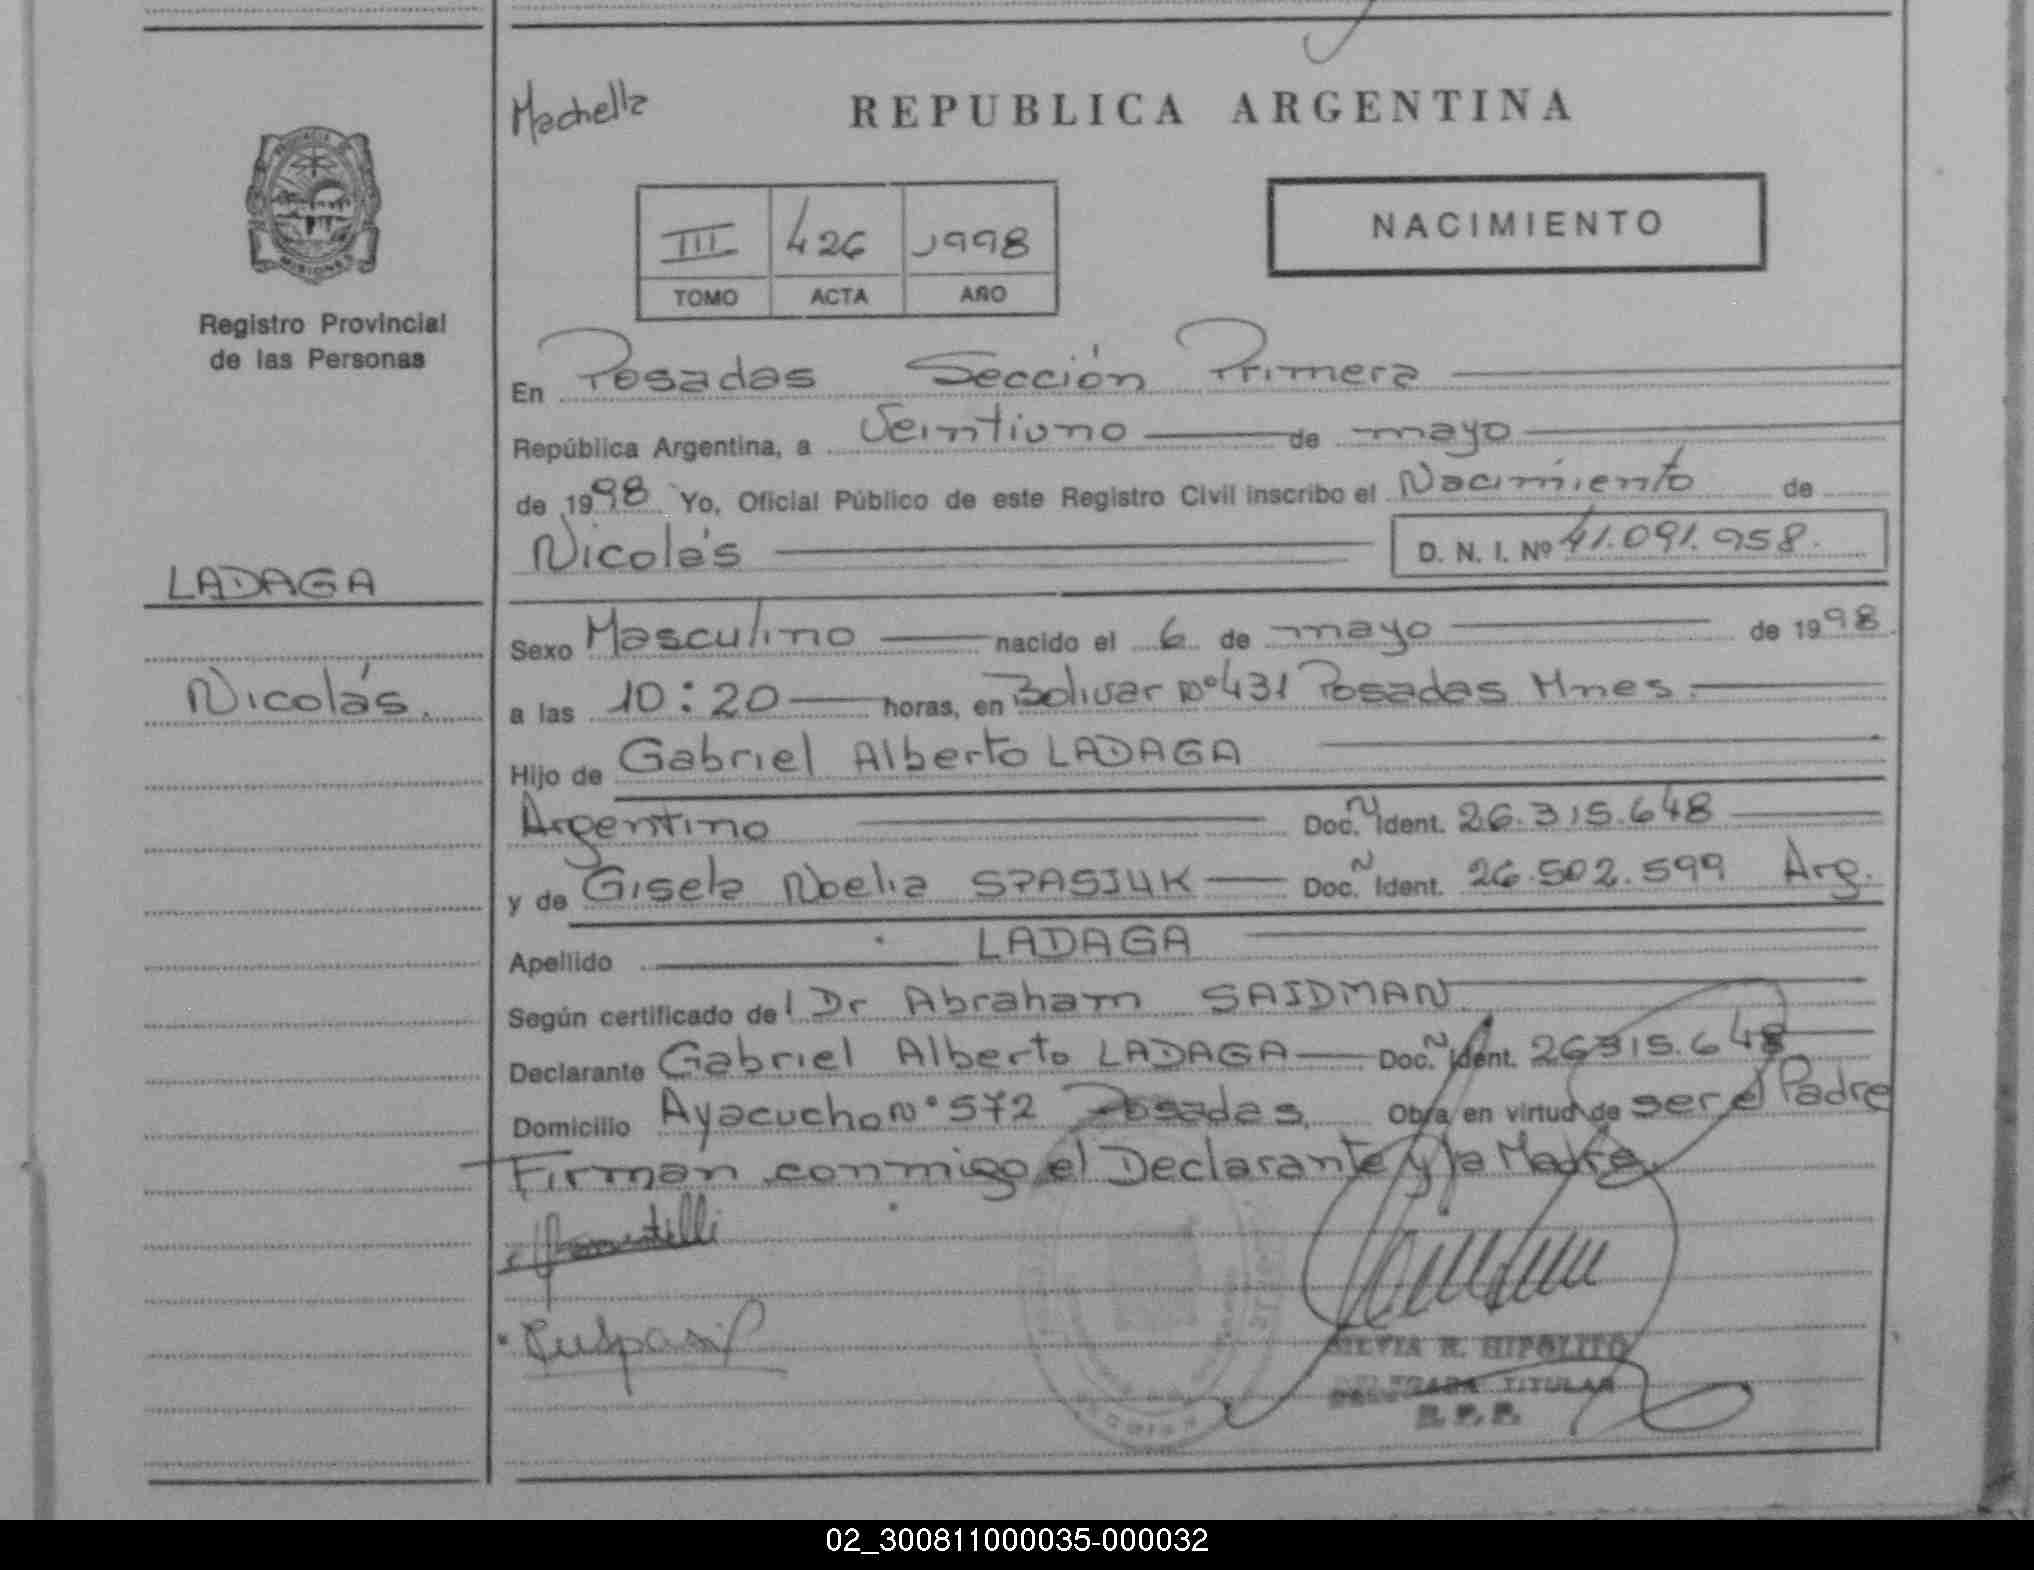 Machella
REPUBLICA ARGENTINA
PROVINCIA DE
MISIONES
Registro Provincial
de las Personas
III 426 1998
TOMO ACTA AÑO
NACIMIENTO
En Posadas Sección Primera
República Argentina, a Veintiuno de mayo
de 1998 Yo, Oficial Público de este Registro Civil inscribo el Nacimiento de
Nicolás D. N. I. Nº 41.091.958.
LADAGA
Nicolás.
Sexo Masculino nacido el 6 de mayo de 1998
a las 10:20 horas, en Bolivar Nº 431 Posadas Mnes.
Hijo de Gabriel Alberto LADAGA
Argentino Doc. N Ident. 26.315.648
y de Gisela Noelia SPASIUK Doc. N Ident. 26.502.599 Arg.
Apellido LADAGA
Según certificado del Dr Abraham SAIDMAN
Declarante Gabriel Alberto LADAGA Doc. N Ident. 26315.648
Domicilio Ayacucho Nº 572 Posadas. Obra en virtud de ser el Padre
Firman conmigo el Declarante y la Madre.
SILVIA R. HIPOLITO
DELEGADA TITULAR
R. P. P.
02_300811000035-000032